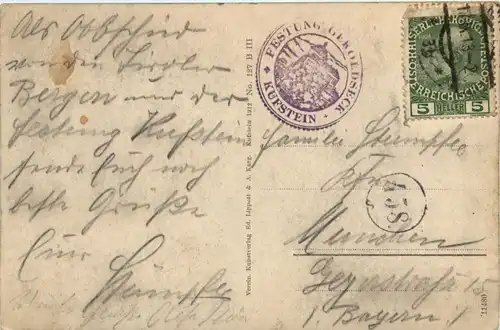 Als Abschied
von den Tiroler
Bergen und der
Festung Kufstein
sende Euch noch
beste Grüße
Euer
Stumpfle
FESTUNG GEROLDSECK
KUFSTEIN
KAISERLICHE KÖNIGLICHE
ÖSTERREICHISCHE POST
5 HELLER 5
Familie Stumpfle
458.
München
15
(Bayern)
Verein. Kunstverlag Ed. Lippott & A. Karg, Kufstein 1912 No. 127 B III
11480